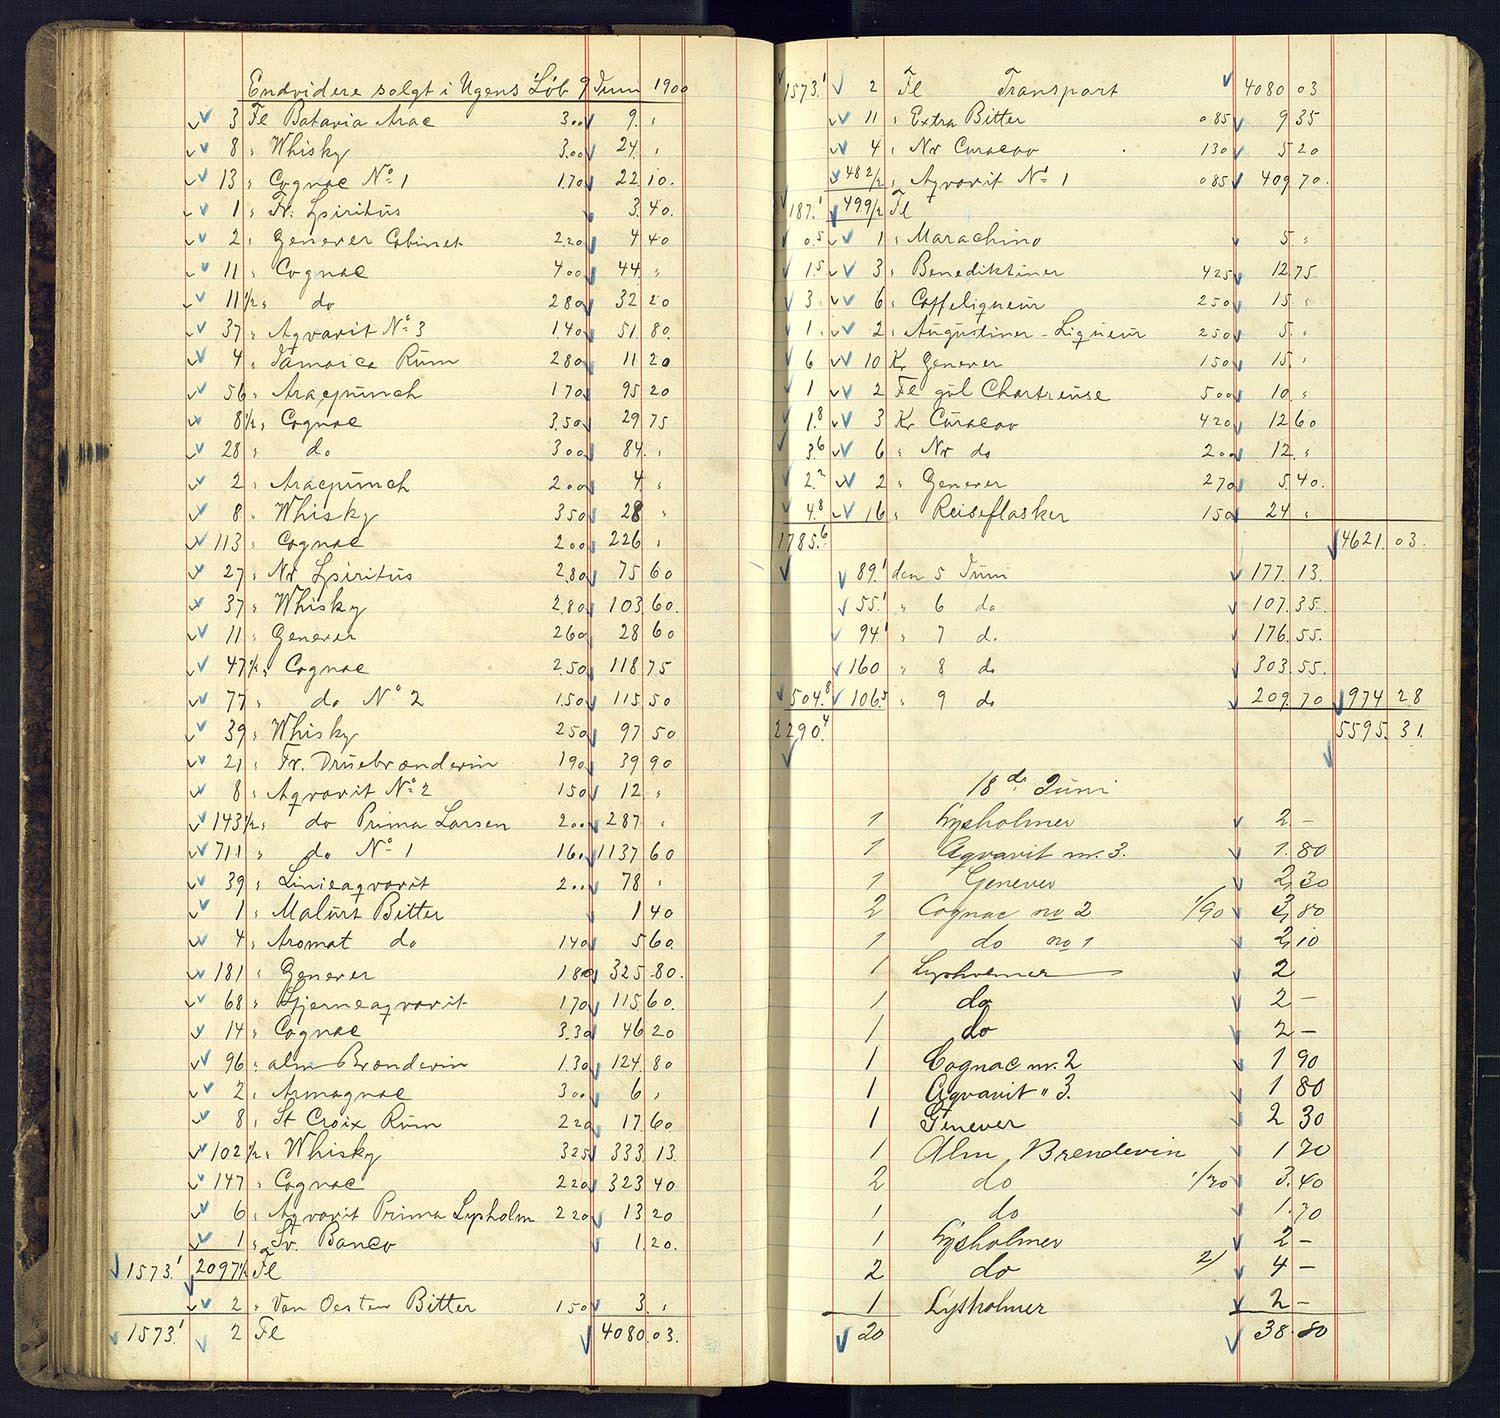 Endvidere solgt i Ugens Løb 9 Juni 1900
3 Fl Batavia Arac 3.00 9. "
8 " Whisky 3.00 24. "
13 " Cognac No 1 1.70 22 10.
1 " Fr. Spiritus 3. 40.
2 " Genever Cabinet 2.20 4 40
11 " Cognac 4 00 44. "
11 1/2 " do 2 80 32 20
37 " Aqvavit No 3 1.40 51. 80.
4 " Jamaica Rum 2 80 11 20
56 " Aracpunch 1 70 95 20
8 1/2 " Cognac 3.50 29 75
28 " do 3 00 84. "
2 " Aracpunch 2 00 4 "
8 " Whisky 3 50 28 "
113 " Cognac 2 00 226 "
27 " Nr Spiritus 2.80 75 60
37 " Whisky 2.80 103 60.
11 " Genever 2 60 28 60
47 1/2 " Cognac 2.50 118 75
77 " do No 2 1.50 115 50
39 " Whisky 2 50 97 50
21 " Fr. Druebrændevin 1 90 39 90
8 " Aqvavit No 2 1 50 12 "
143 1/2 " do Prima Larsen 2 00 287 "
711 " do No 1 1 60 1137 60
39 " Linieaqvavit 2 00 78 "
1 " Malurt Bitter 1 40
4 " Aromat do 1 40 5 60.
181 " Genever 1 80 325 80.
68 " Stjerneaqvavit 1 70 115 60.
14 " Cognac 3.30 46 20
96 " alm Brændevin 1.30 124. 80
2 " Armagnac 3 00 6 "
8 " St Croix Rum 2 20 17. 60
102 1/2 " Whisky 3 25 333 13
147 " Cognac 2 20 323 40
6 " Aqvavit Prima Lysholm 2 20 13 20
1 " Sv. Banco 1. 20.
1573.1 2097 1/2 Fl
2 " Van Oosten Bitter 1 50 3. "
1573.1 2 Fl 4080. 03.
1573.1 2 Fl Transport 4080 03
11 " Extra Bitter 0 85 9 35
4 " Nr Curacao 1 30 5 20
482 1/2 " Aqvavit No 1 0 85 409 70.
187.1 499 1/2 Fl
0.5 1 " Marachino 5. "
1.5 3 " Benediktiner 4 25 12 75.
3 6 " Caffeliqueur 2 50 15 "
1. 2 " Augustiner-Liqueur 2 50 5. "
6 10 Kr Genever 1 50 15. "
1 2 Fl gul Chartreuse 5 00 10 "
1.8 3 Kr Curacao 4 20 12 60
3.6 6 " Nr do 2 00 12. "
2.2 2 " Genever 2 70 5. 40.
4.8 16 " Reiseflasker 1 50 24 "
1785.6 4621. 03.
89.1 den 5 Juni 177. 13.
55.1 " 6 do 107. 35.
94.1 " 7 do 176. 55.
160 " 8 do 303. 55.
504.8 106.5 " 9 do 209. 70 974 28
2290.4 5595. 31.
18 de Juni
1 Lysholmer 2 -
1 Aqvavit nr. 3. 1. 80
1 Genever 2. 30
2 Cognac no 2 1/90 3, 80
1 do no 1 2, 10
1 Lysholmer 2
1 do 2 -
1 do 2 -
1 Cognac nr. 2 1 90
1 Aqvavit " 3. 1 80
1 Genever 2 30
1 Alm Brendevin 1 70
2 do 1/70 3. 40
1 do 1. 70
1 Lysholmer 2 -
2 do 2/ 4 -
1 Lysholmer 2 -
20 38. 80